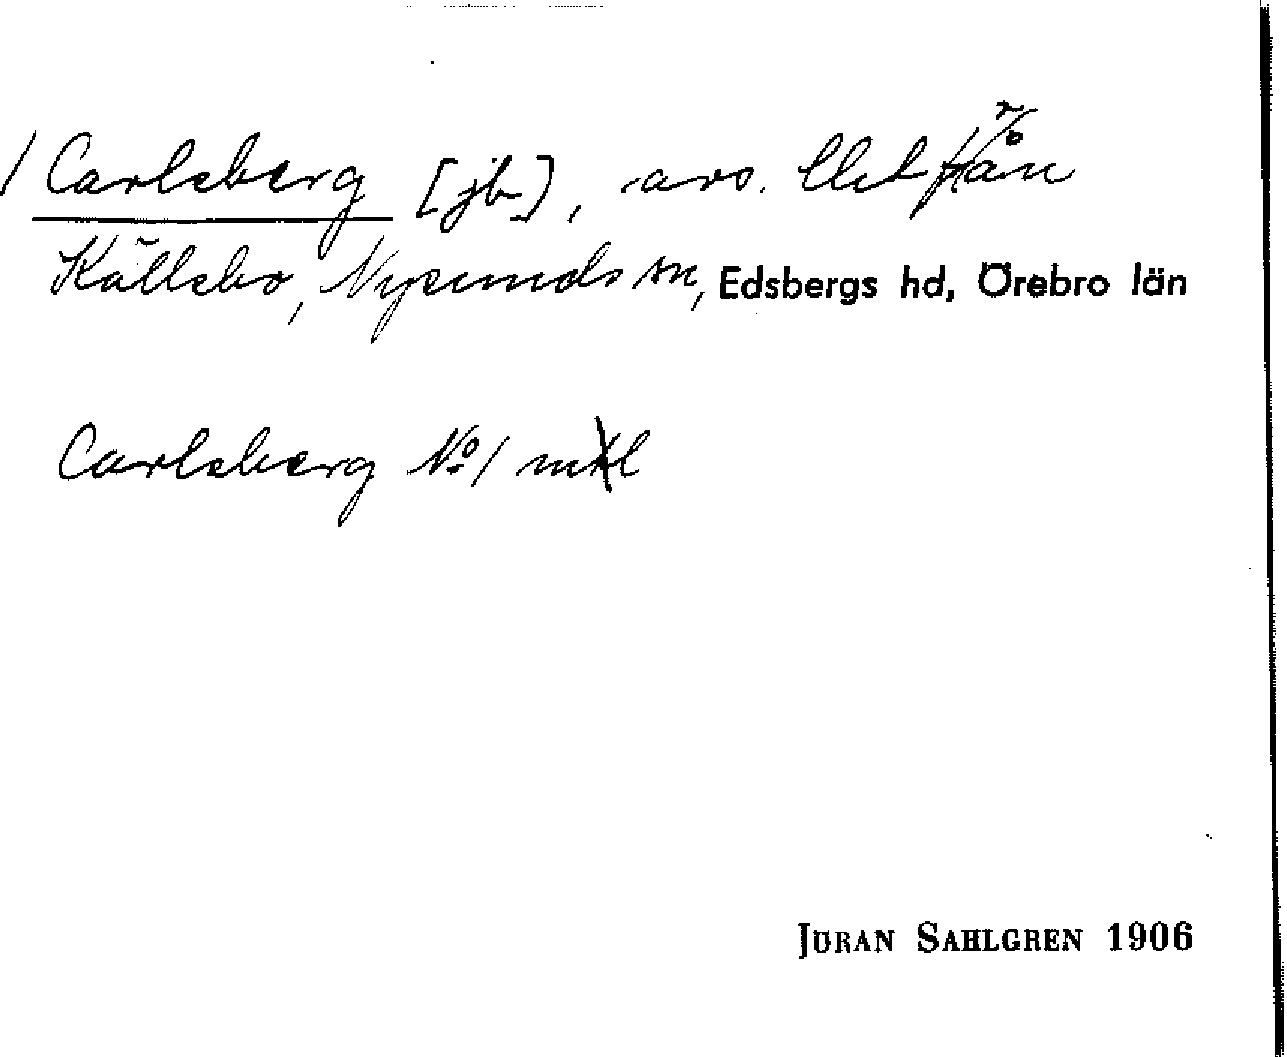 / Carlsberg [jb], avs. Utb från
Källsbo, Nysunds sn, Edsbergs hd, Örebro län
Carlsberg No 1 mtl
JÖRAN SAHLGREN 1906